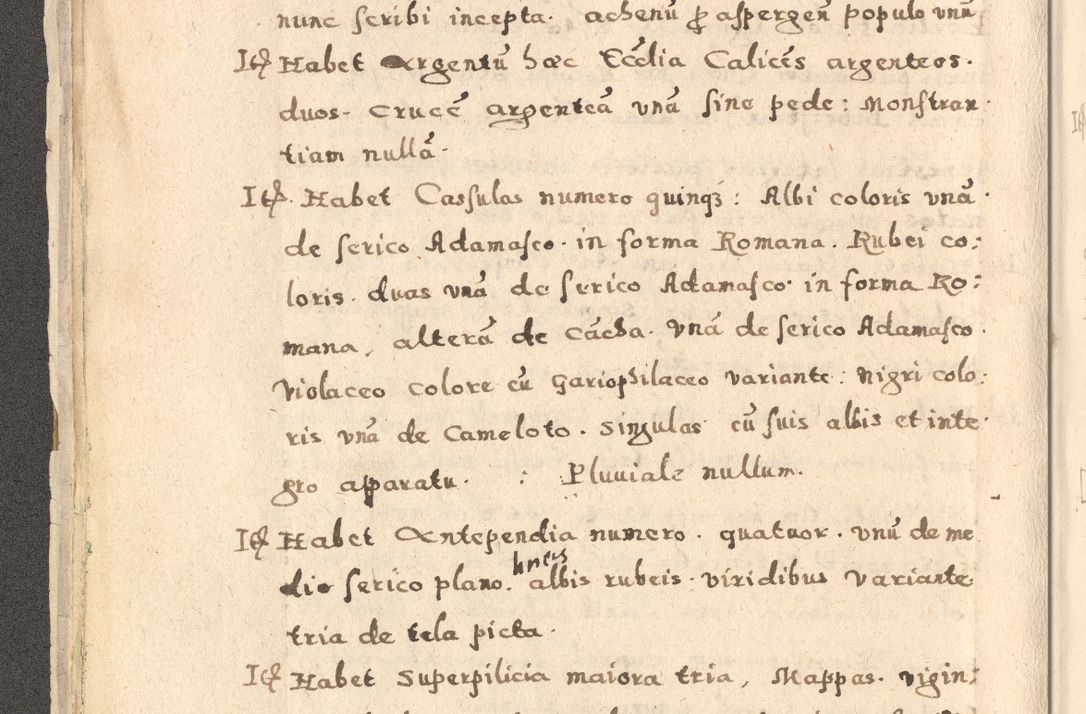 nunc scribi incepta. achenũ ꝓ aspergeñ populo unũ
Itẽ Habet Argentũ hæc Ecc̃lia Calicẽs argenteos.
duos. Crucẽ argenteã unã sine pede: Monstran
tiam nullã.
Itẽ. Habet Cassulas numero quinqꝫ: Albi coloris unã.
de serico Adamasco. in forma Romana. Rubei co:
loris. duas unã de serico Adamasco. in forma Ro:
mana, alterã de Cãcha. Unã de serico Adamasco.
Violaceo colore cũ Gariophilaceo variante: Nigri colo:
ris unã de Cameloto. Singulas cũ suis albis et inte
gro apparatu. : Pluviale nullum.
Itẽ Habet Antependia numero. quatuor. unũ de me
dio serico plano. lineis albis rubeis. viridibus variante
tria de tela picta.
Itẽ Habet Superpilicia maiora tria, Mappas. vigin: